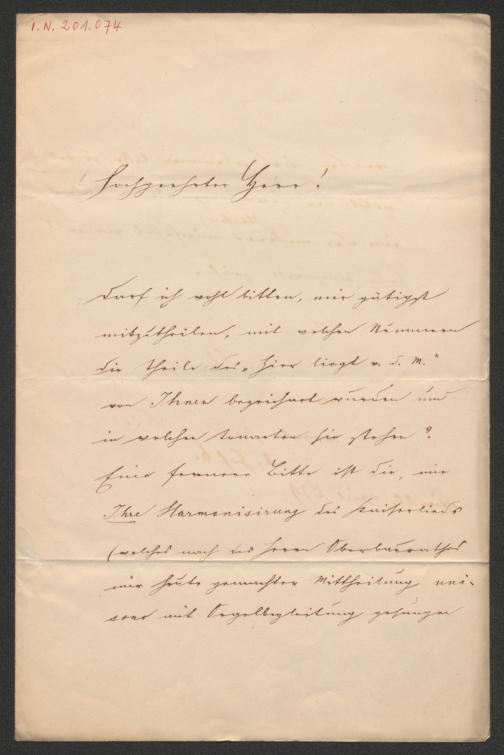 I.N. 201.074
Hochgeehrter Herr!
Darf ich wohl bitten, mir gütigst
mitzutheilen, mit welchen Nummern
die Theile des „Hier liegt v. d. M."
von Ihnen bezeichnet wurden und
in welchen Tonarten sie stehen?
Eine fernere Bitte ist die, mir
Ihre Harmonisirung des Kaiserlieds
(welches nach des Herrn Oberbaurathes
mir heute gemachter Mittheilung uni-
sono mit Orgelbegleitung gesungen